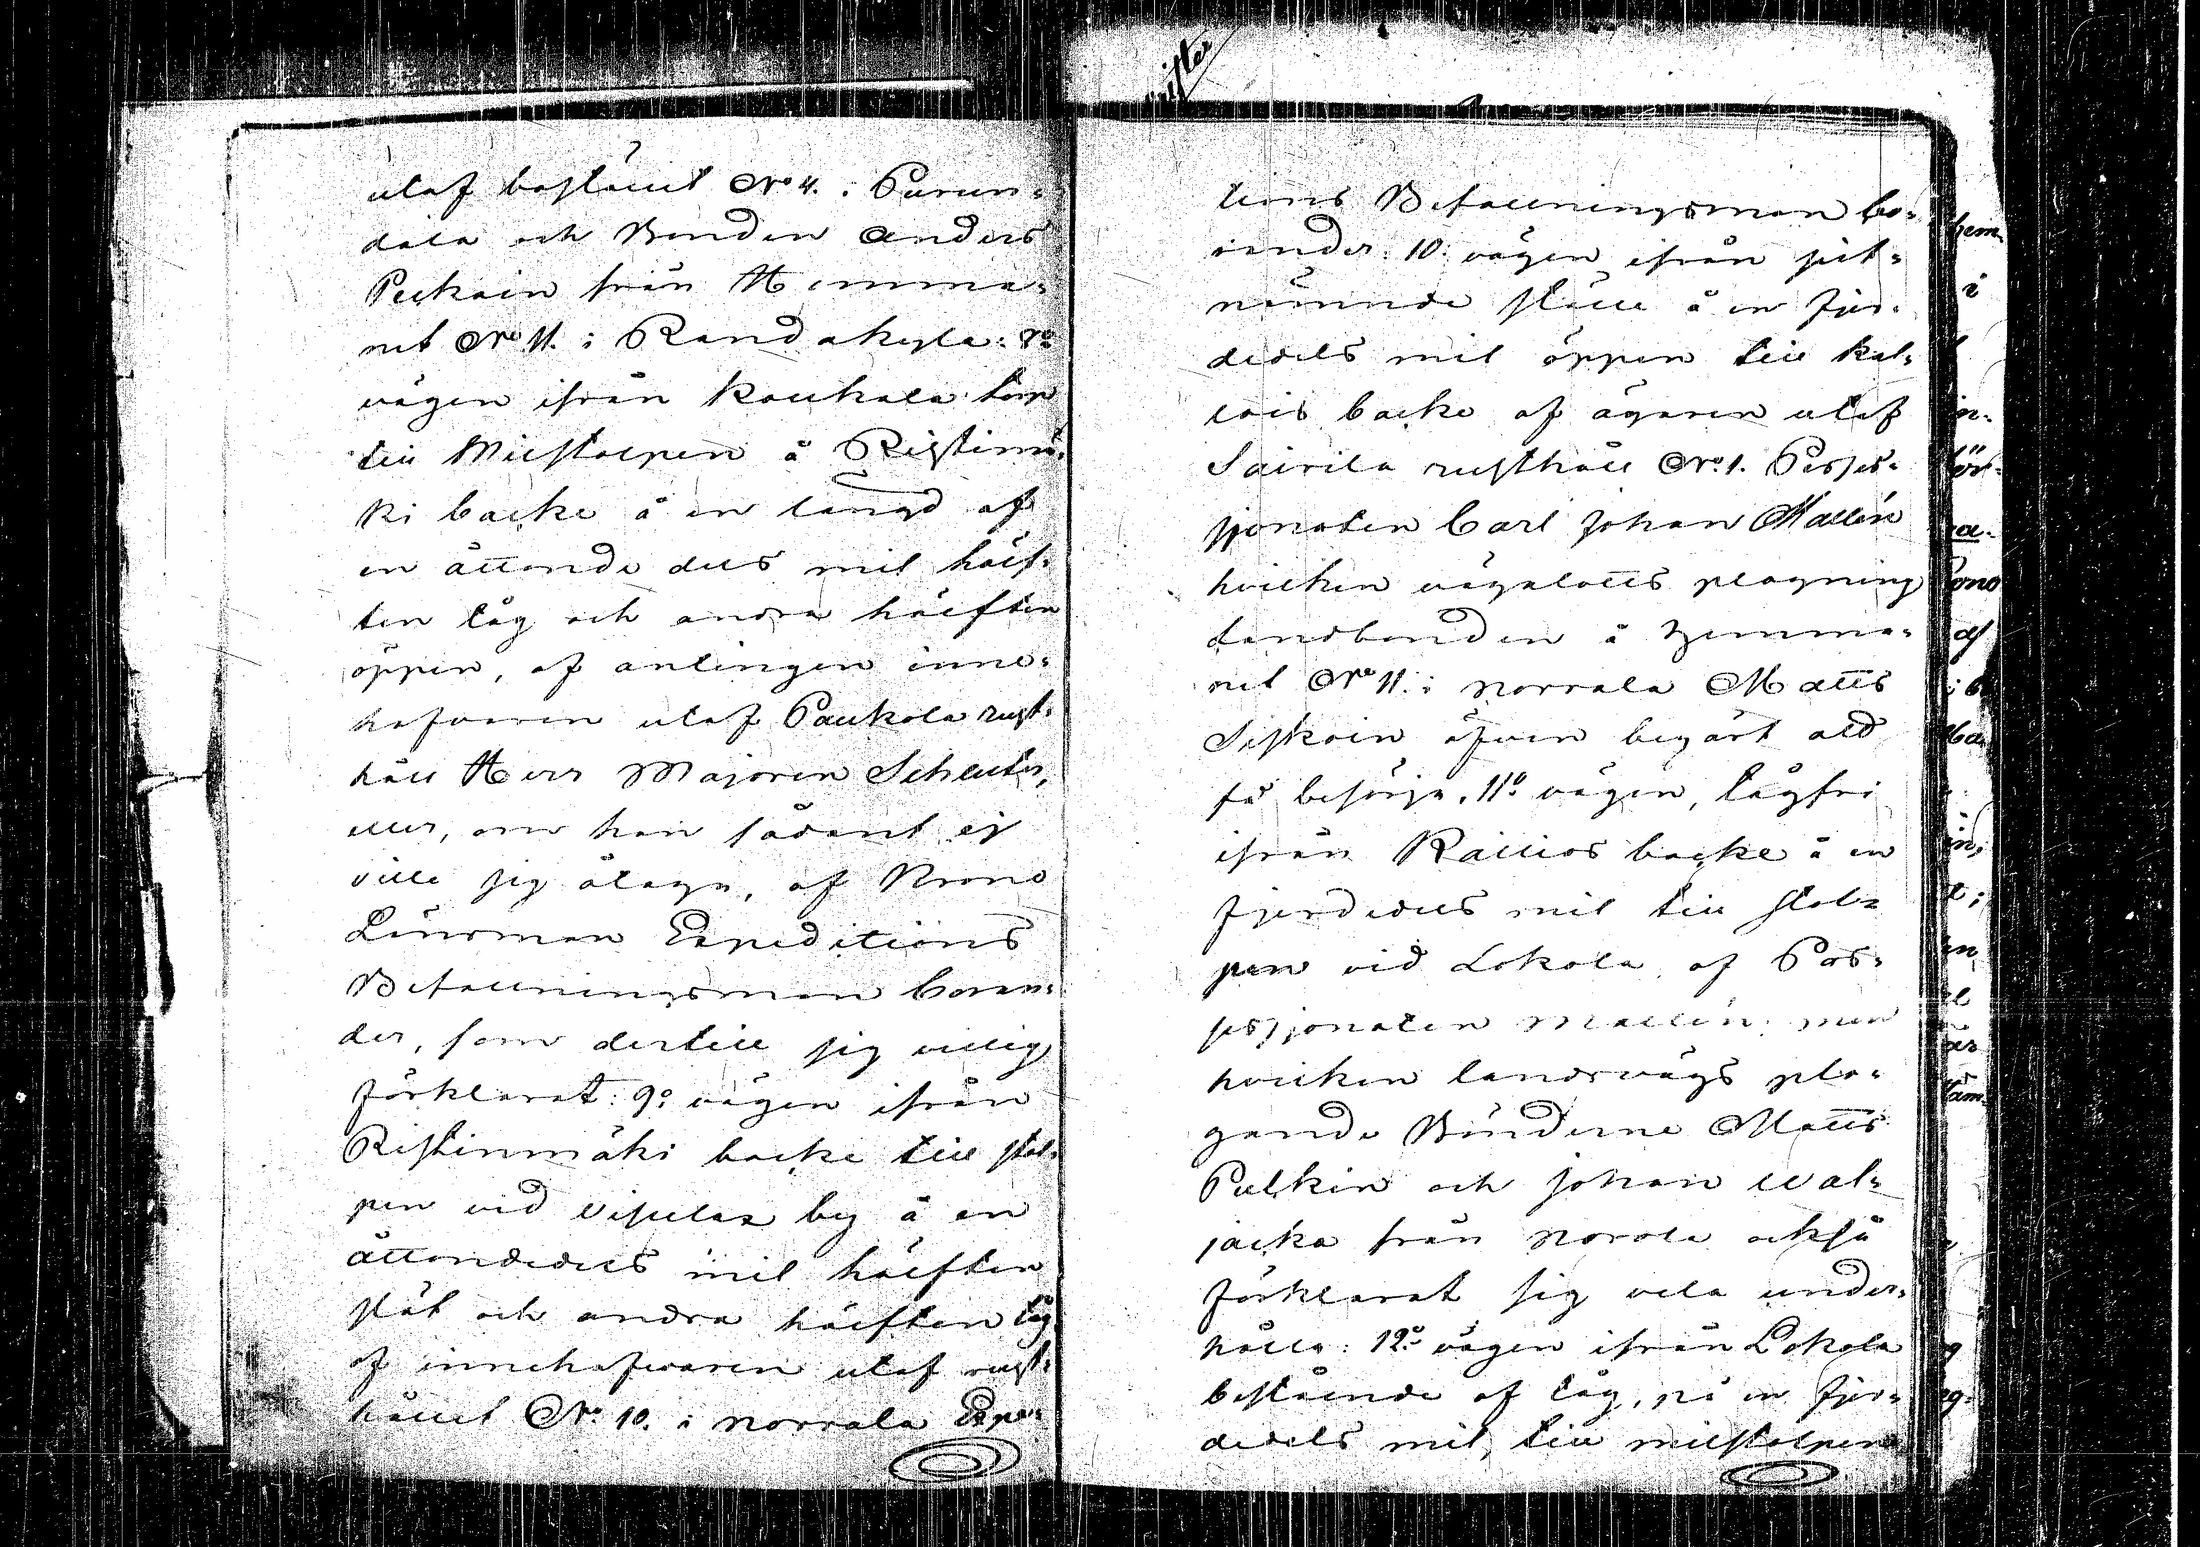 utaf bostället No 4. i Purun-
dala och Bonden Anders
Peckoin från Hemma-
net No 11. i Randakylä: 8o
vägen ifrån Koukala torp
till Milstolpen å Ristimä-
ki backe å en längd af
en åttonde dels mil hälf-
ten låg och andra hälften
öppen, af antingen inne-
hafvaren utaf Paukola rust-
håll Herr Majoren Schlüter,
eller, om han sådant ej
ville sig åtaga, af Krono
Länsman Expeditions
Befallningsman Coran-
der, som dertill sig villig
förklarat: 9o vägen ifrån
Ristinmäki backe till stol-
pen vid Visulax by å en
åttondedels mil hälften
slät och andra hälften låg
af innehafwaren utaf rust-
hållet No 10. i Norrala Expe-
tions Befallningsman Co-
rander: 10. vägen ifrån sist-
nämnde ställe å en fjer-
dedels mil öppen till Kal-
liois backe af ägaren utaf
Sairila rusthåll No 1. Posses-
sjonaten Carl Johan Mallén
hvilken vägalotts plogning
Landbonden å Hemma-
net No 11. i Norrala Matts
Siskoin äfven begärt att
få besörja. 11o vägen, lågfri
ifrån Kallios backe å en
fjerdedels mil till stol-
pen vid Lokola, af Pos-
sessjonaten Mallén: men
hvilken landsvägs plo-
gande Bönderne Matts
Pulkin och Johan Wal-
jacka från Norola också
förklarat sig vela under-
hålla: 12o vägen ifrån Lokola
bestående af låg, på en fjer-
dedels mil, till milstolpen